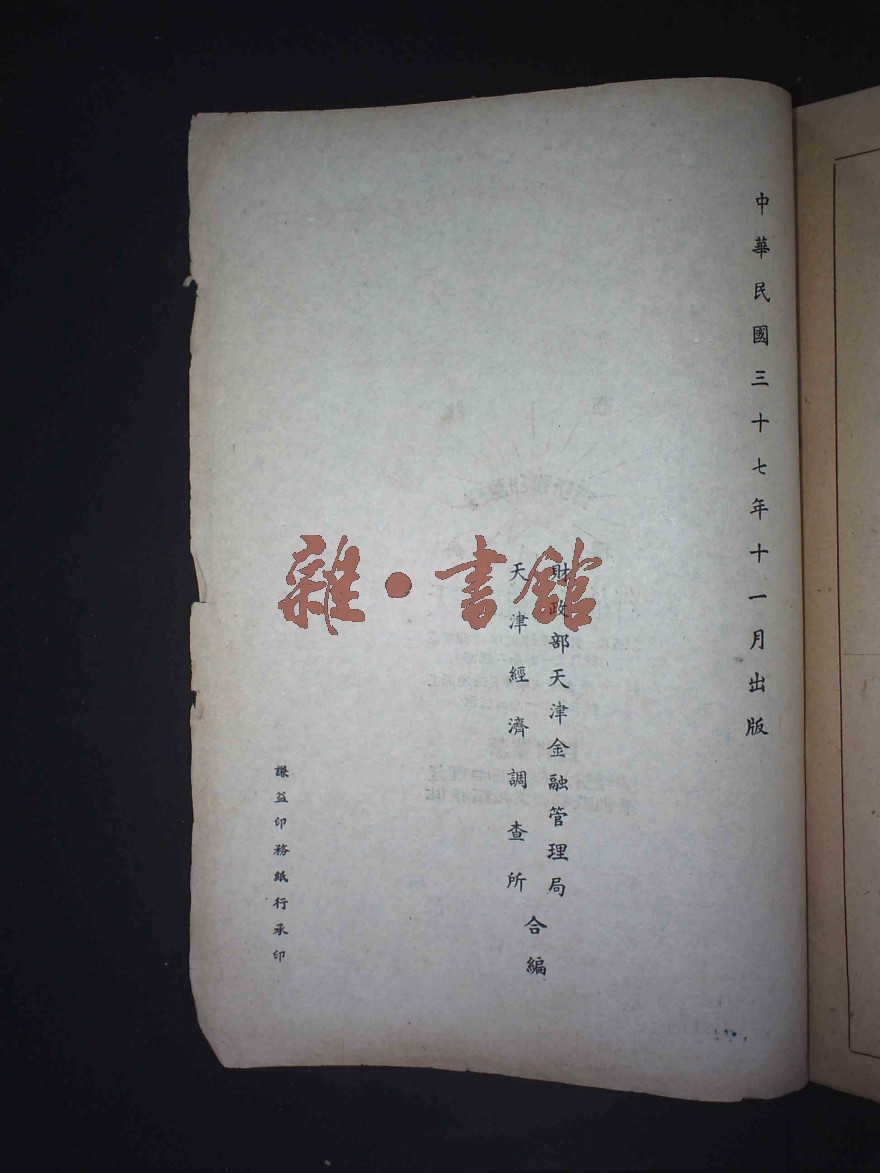 中華民國三十七年十一月出版
財政部天津金融管理局
天津經濟調查所
合編
謙益印務紙行承印
雜·書館